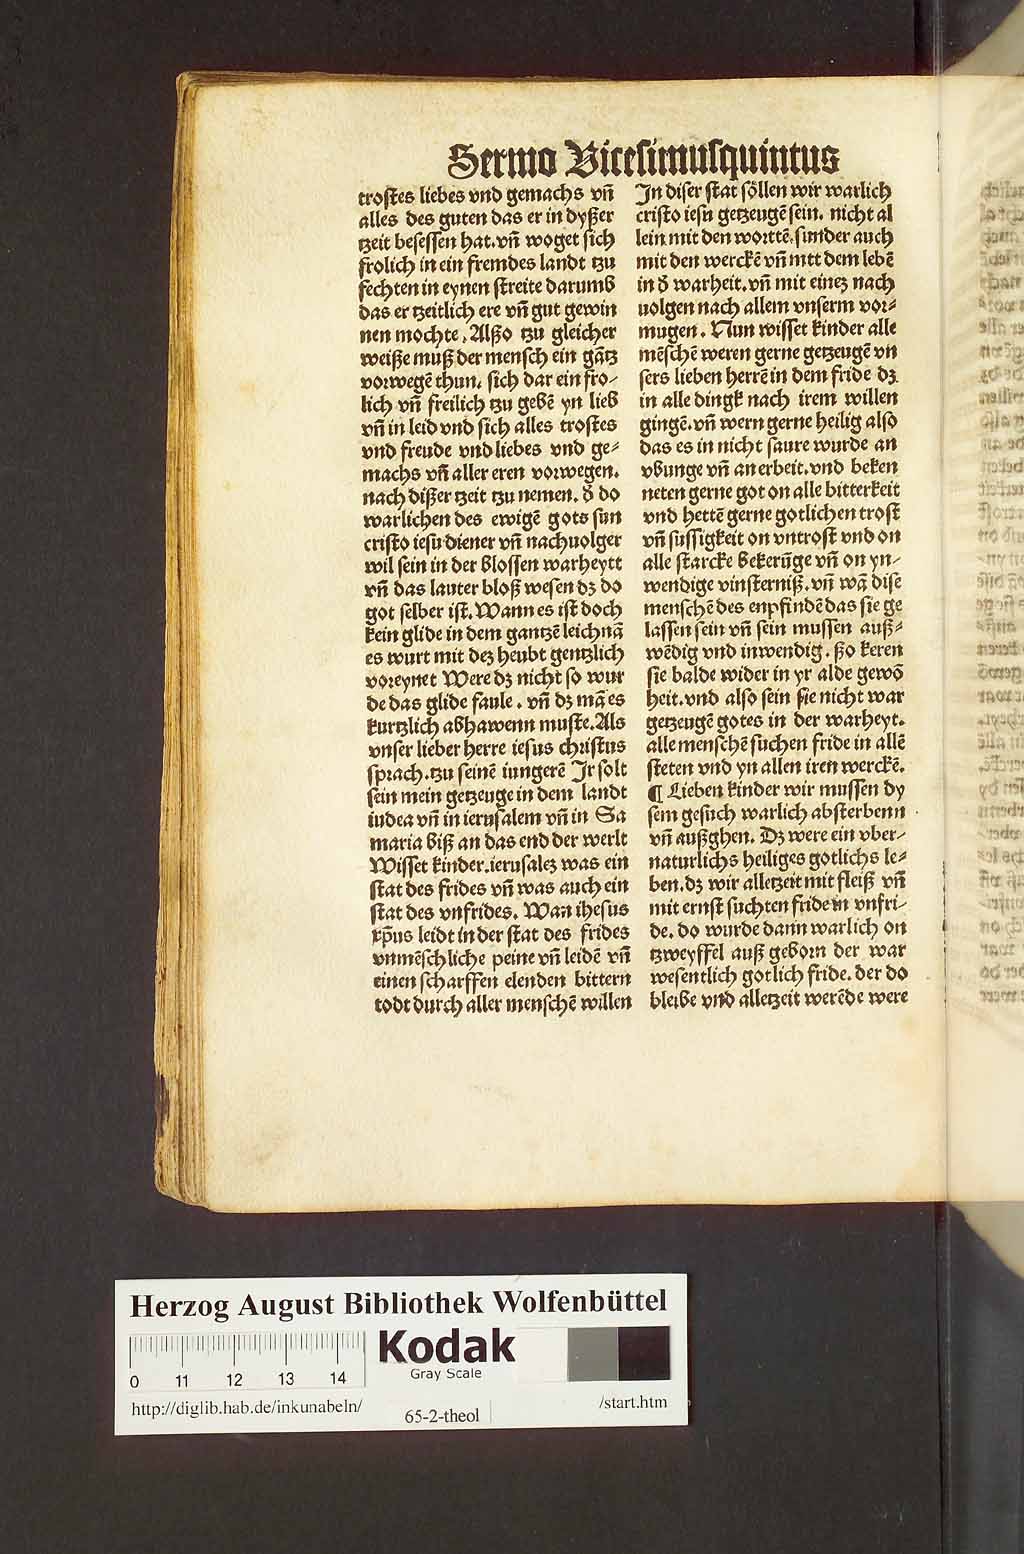 Sermo Vicesimusquintus
trostes liebes vnd gemachs vn̄
alles des guten das er in dyßer
tzeit besessen hat. vn̄ woget sich
frolich in ein fremdes landt tzu
fechten in eynen streite darumb
das er tzeitlich ere vn̄ gut gewin
nen mochte. Alßo tzu gleicher
weiße muß der mensch ein gātz
vorwegē thun, sich dar ein fro-
lich vn̄ freilich tzu gebē yn lieb
vn̄ in leid vnd sich alles trostes
vnd freude vnd liebes vnd ge-
machs vn̄ aller eren vorwegen.
nach dißer tzeit tzu nemen. d̄ do
warlichen des ewigē gots sun
cristo iesu diener vn̄ nachuolger
wil sein in der blossen warheytt
vn̄ das lauter bloß wesen dz do
got selber ist. Wann es ist doch
kein glide in dem gantzē leichnā
es wurt mit dez heubt gentzlich
voreynet Were dz nicht so wur
de das glide faule. vn̄ dz mā es
kurtzlich abhawenn muste. Als
vnser lieber herre iesus christus
sprach. tzu seinē iungerē Ir solt
sein mein getzeuge in dem landt
iudea vn̄ in ierusalem vn̄ in Sa
maria biß an das end der werlt
Wisset kinder. ierusalez was ein
stat des frides vn̄ was auch ein
stat des vnfrides. Wan ihesus
xp̄us leidt in der stat des frides
vnmēschliche peine vn̄ leidē vn̄
einen scharffen elenden bittern
todt durch aller menschē willen
In diser stat söllen wir warlich
cristo iesu getzeugē sein. nicht al
lein mit den worttē. sunder auch
mit den werckē vn̄ mtt dem lebē
in d̄ warheit. vn̄ mit einez nach
uolgen nach allem vnserm vor-
mugen. Nun wisset kinder alle
mēschē weren gerne getzeugē vn
sers lieben herrē in dem fride dz
in alle dingk nach irem willen
gingē. vn̄ wern gerne heilig also
das es in nicht saure wurde an
vbunge vn̄ an erbeit. vnd beken
neten gerne got on alle bitterkeit
vnd hettē gerne gotlichen trost
vn̄ sussigkeit on vntrost vnd on
alle starcke bekerūge vn̄ on yn-
wendige vinsterniß. vn̄ wā dise
menschē des enpfindē das sie ge
lassen sein vn̄ sein mussen auß-
wēdig vnd inwendig. ßo keren
sie balde wider in yr alde gewō
heit. vnd also sein sie nicht war
getzeugē gotes in der warheyt.
alle menschē suchen fride in allē
steten vnd yn allen iren werckē.
¶ Lieben kinder wir mussen dy
sem gesuch warlich absterbenn
vn̄ außghen. Dz were ein vber-
naturlichs heiliges gotlichs le-
ben. dz wir alletzeit mit fleiß vn̄
mit ernst suchten fride in vnfri-
de. do wurde dann warlich on
tzweyffel auß geborn der war
wesentlich gotlich fride. der do
bleibe vnd alletzeit werēde were
Herzog August Bibliothek Wolfenbüttel
Kodak
Gray Scale
0 11 12 13 14
http://diglib.hab.de/inkunabeln/
65-2-theol
/start.htm